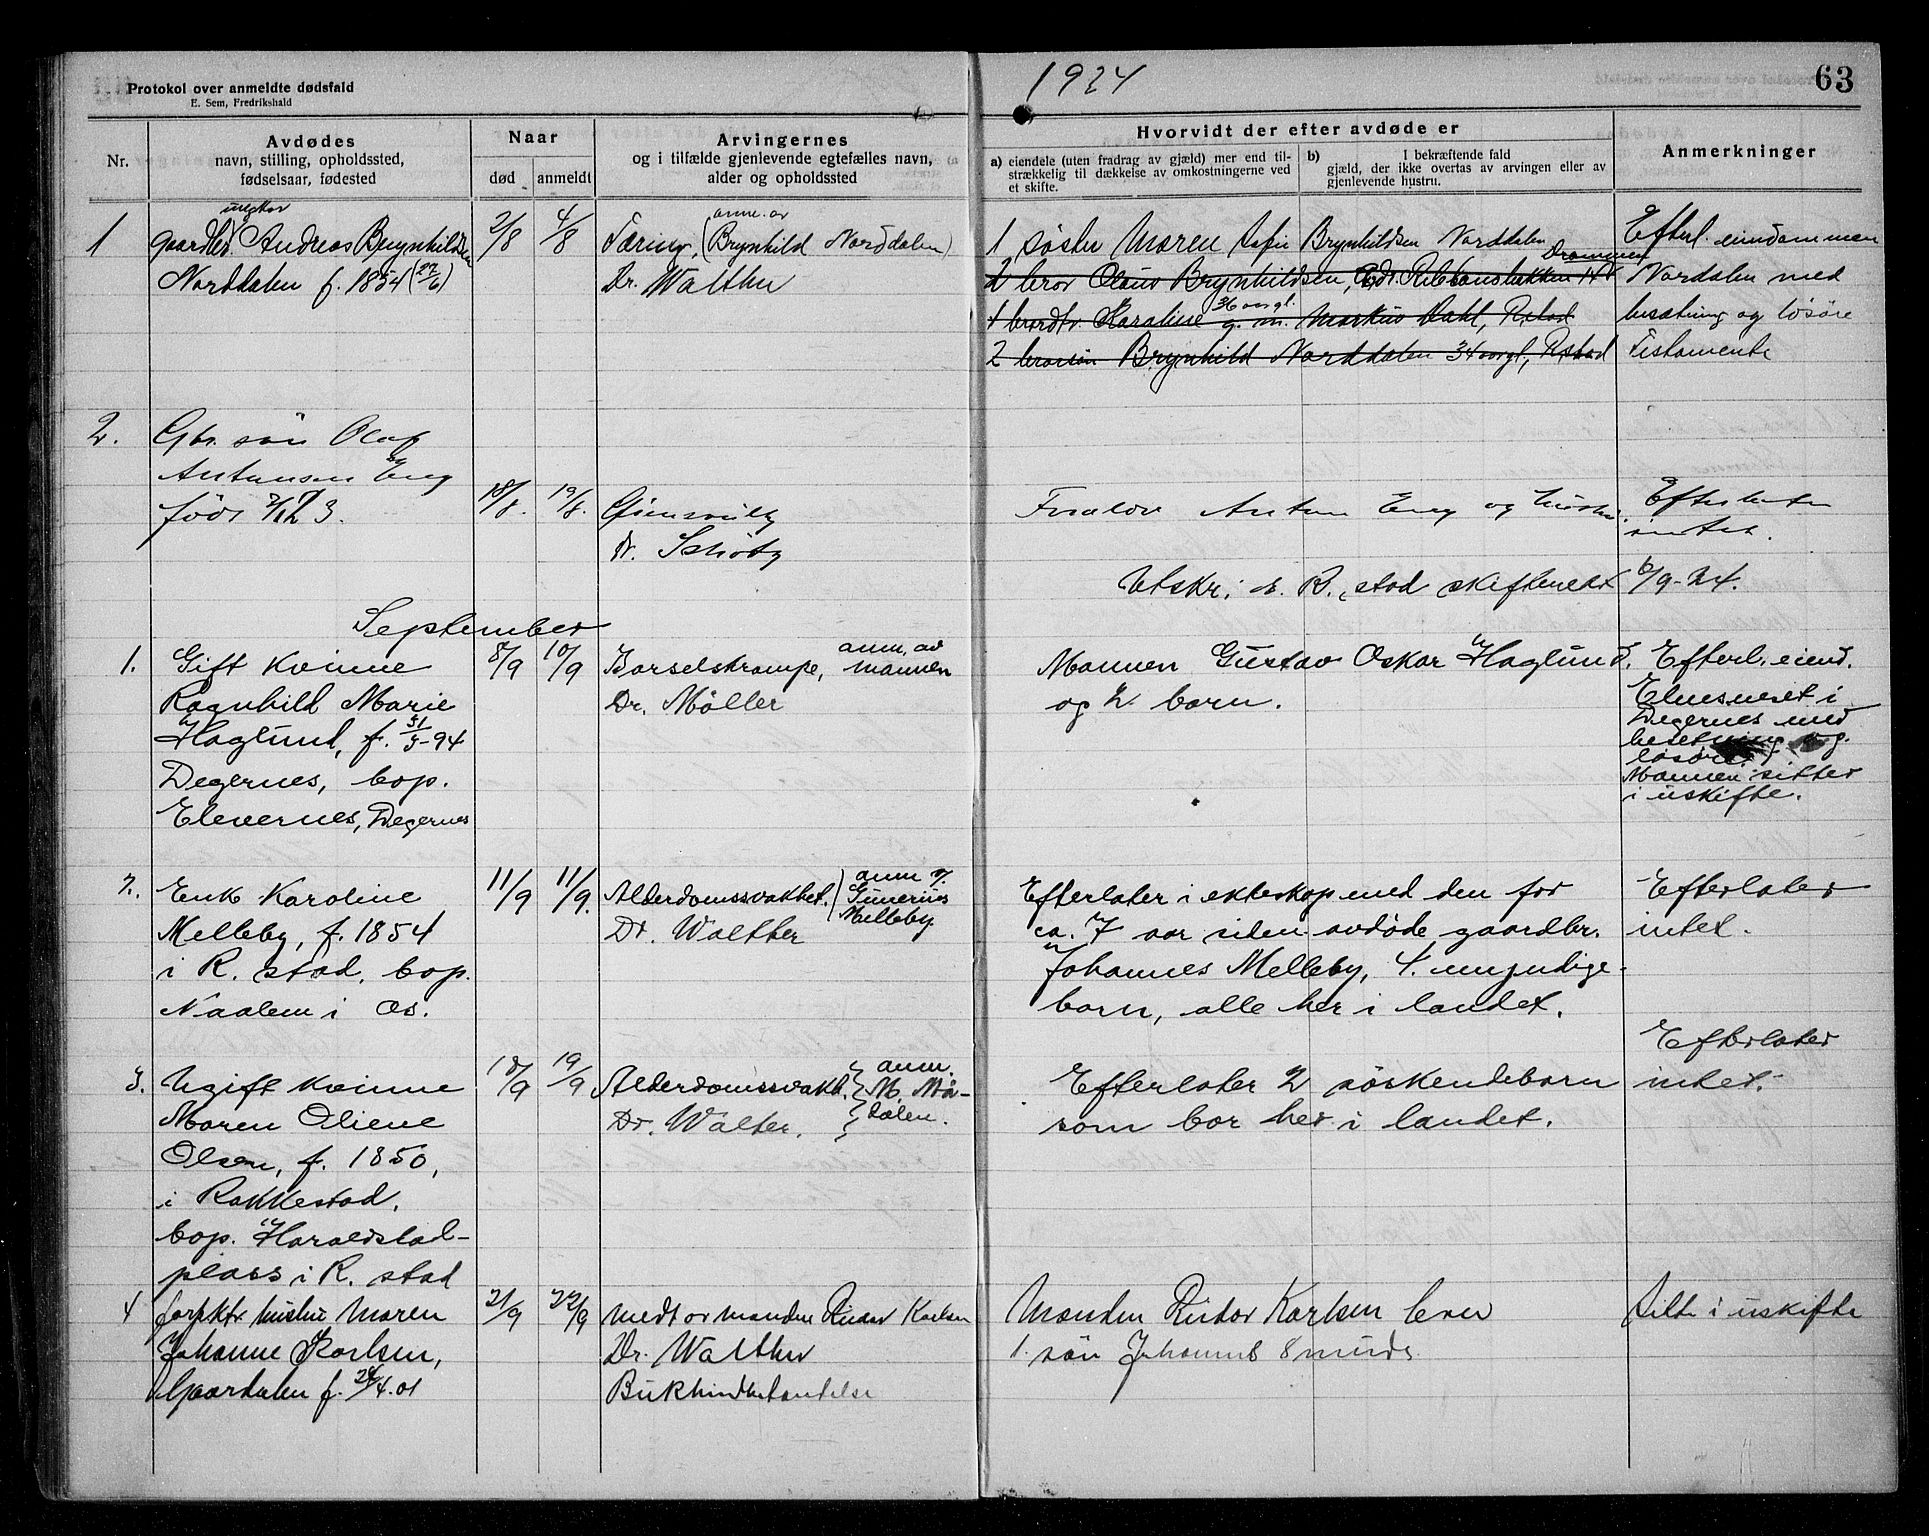 Protokol over anmeldte dødsfald
E. Sem, Fredrikshald
1924
63
Nr.
Avdødes
navn, stilling, opholdssted,
fødselsaar, fødested
Naar
død
anmeldt
Arvingernes
og i tilfælde gjenlevende egtefælles navn,
alder og opholdssted
Hvorvidt der efter avdøde er
a) eiendele (uten fradrag av gjæld) mer end til-
strækkelig til dækkelse av omkostningerne ved
et skifte.
b) I bekræftende fald
gjæld, der ikke overtas av arvingen eller av
gjenlevende hustru.
Anmerkninger
1
ungkar
gaardbr. Andreas Brynhildsen
Norddalen f. 1854 (27/6)
2/8
4/8
Tæring, (anm. av Brynhild Norddalen)
Dr. Walther
1 søster Maren Sofie Brynhildsen Norddalen
2 bror Olaus Brynhildsen, Drammen
1 brordtr. Karoline 36 aar gl. g. m. Markus Dahl, R.stad
2 brorsøn Brynhild Norddalen 34 aar gl, R.stad
Efterl. eiendommen
Nordalen med
besætning og løsøre
Testamente
2.
Gbr. søn Olaf
Antonsen Eng
født
18/8.
19/8.
Dr. Schøtz
Anton Eng og hustru.
Efterlater
intet.
Utskr. R.stad skifteret 6/9-24.
September
1.
Gift kvinne
Ragnhild Marie
Haglund, f. 31/5-94
Degernes, bop.
Elevernes, Degernes
8/9
10/9
Barselskrampe, anm. av mannen
Dr. Møller
Mannen Gustav Oskar Haglund.
og 2 barn.
Efterl. eiend.
Elnesneset i
Degernes med
besetning og
løsøre.
Mannen sitter
i uskifte.
2.
Enk Karoline
Melleby, f. 1854
i R. stad, bop.
Naalem i Os.
11/9
11/9.
Alderdomssvakhet. (anm v. Gunerius Melleby.
Dr. Walther
Efterlater i ekteskap med den for
ca. 7 aar siden avdøde gaardbr.
Johannes Melleby, 4. myndige
barn, alle her i landet.
Efterlater
intet.
3.
Ugift kvinne
Maren Oliene
Olsen, f. 1850,
i Rakkestad.
bop. Haraldstad-
plass i R. stad
18/9
19/9
Alderdomssvakh. anm. M. Mødalen.
Dr. Walter.
Efterlater 2 søskendebarn
som bor her i landet.
Efterlater
intet.
4
forpktr hustru Maren
Johanne Karlsen,
Gaardalen f. 24/4.01
21/9
22/9
medt av manden Ruder Karlsen
Dr. Walther
Bukhindebetændelse
Manden Karlsen
1. søn Johannes 8 mnds.
sitter i uskifte